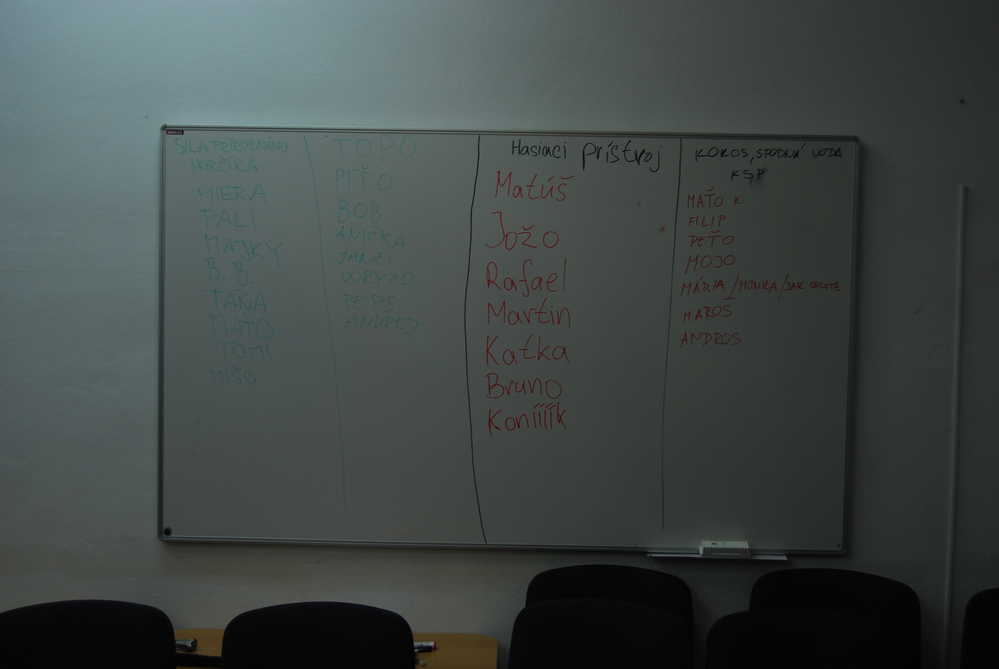 SILA PRIRODZENÉHO
VMIERA
TALI
MAJKY
B.B.
TÁŇA
MAŤO
TOMI
MIŠO
TOPO
PIŤO
BOB
ANIČKA
ANDREJ
Hasiaci prístroj
Matúš
Jožo
Rafael
Martin
Katka
Bruno
Koníííík
KOKOS, SPODNÁ VODA
KSP
MAŤO K
FILIP
PEŤO
MOJO
MÁRIA/MONIKA/JAK CHCETE
MAROŠ
ANDROS